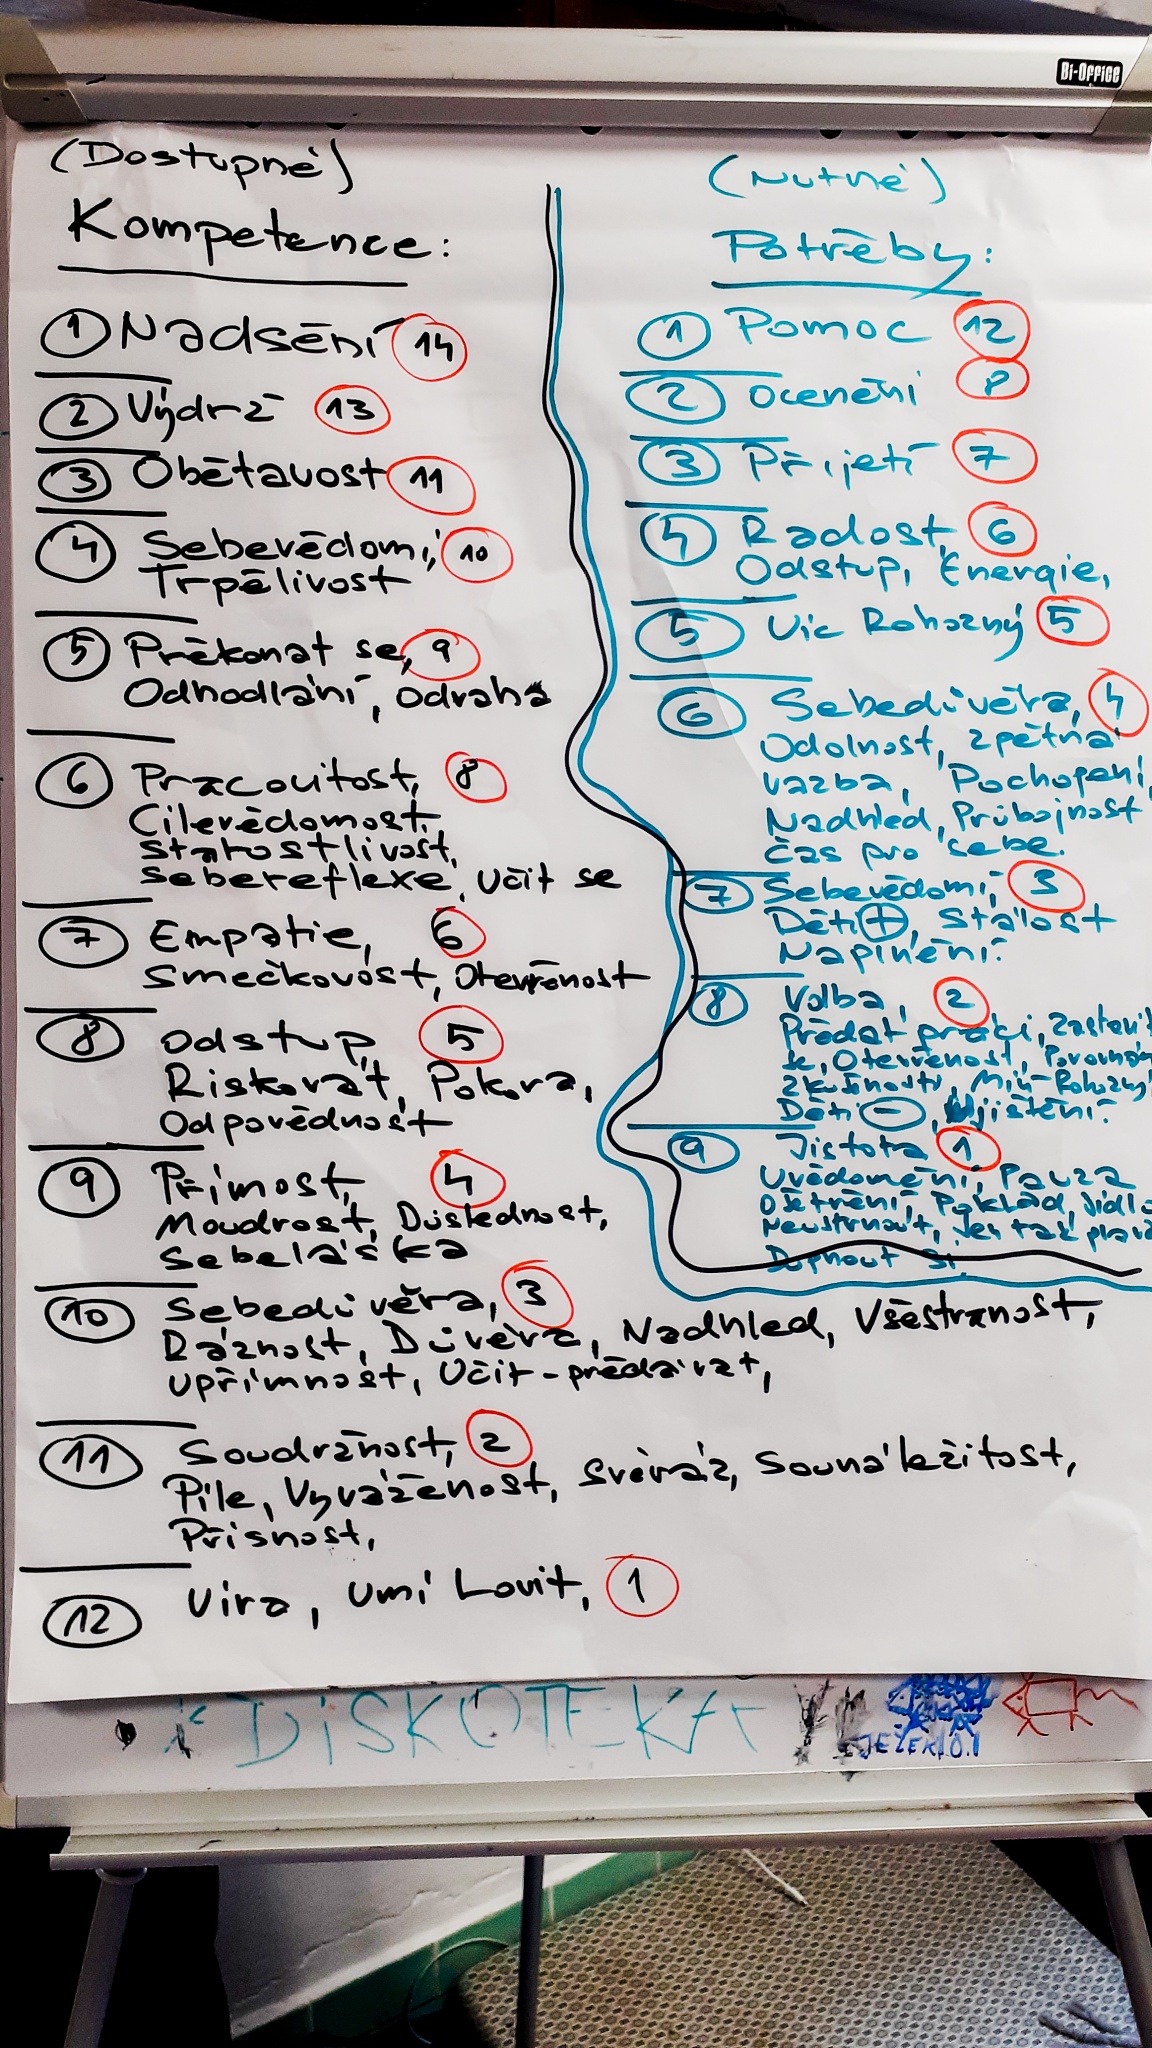 Bi-Office
(Dostupné)
Kompetence:
① Nadšení 14
② Výdrž 13
③ Obětavost 11
④ Sebevědomí, 10
Trpělivost
⑤ Překonat se, 9
Odhodlání, odvaha
⑥ Pracovitost, 8
Cílevědomost,
Starostlivost,
Sebereflexe, Učit se
⑦ Empatie, 6
Smečkovost, Otevřenost
⑧ Odstup, 5
Riskovat, Pokora,
Odpovědnost
⑨ Přímost, 4
Moudrost, Důslednost,
Sebeláska
⑩ Sebedůvěra, 3
Ráznost, Důvěra, Nadhled, Všestranost,
Upřímnost, Učit-předávat,
⑪ Soudržnost, 2
Píle, Vyváženost, Svéráz, Sounáležitost,
Přísnost,
⑫ Víra, Umí Lovit, 1
(Nutné)
Potřeby:
① Pomoc 12
② Ocenění 8
③ Přijetí 7
④ Radost, 6
Odstup, Energie,
⑤ Víc Rohozný 5
⑥ Sebedůvěra, 4
Odolnost, zpětná
vazba, Pochopení,
Nadhled, Průbojnost
čas pro sebe.
⑦ Sebevědomí, 3
Děti ⊕, Stálost
Naplnění.
⑧ Volba, 2
Předat práci, Zastavit
se, Otevřenost,
zkušeností, Míň-Rohozný
Děti ⊖, Ujištění.
⑨ Jistota 1
Uvědomění, Pauza
Ošetření, Poklad, Jídlo
Neustrnout, Jen tak
Dupnout si.
DiSKOTEKA
JEŽEK